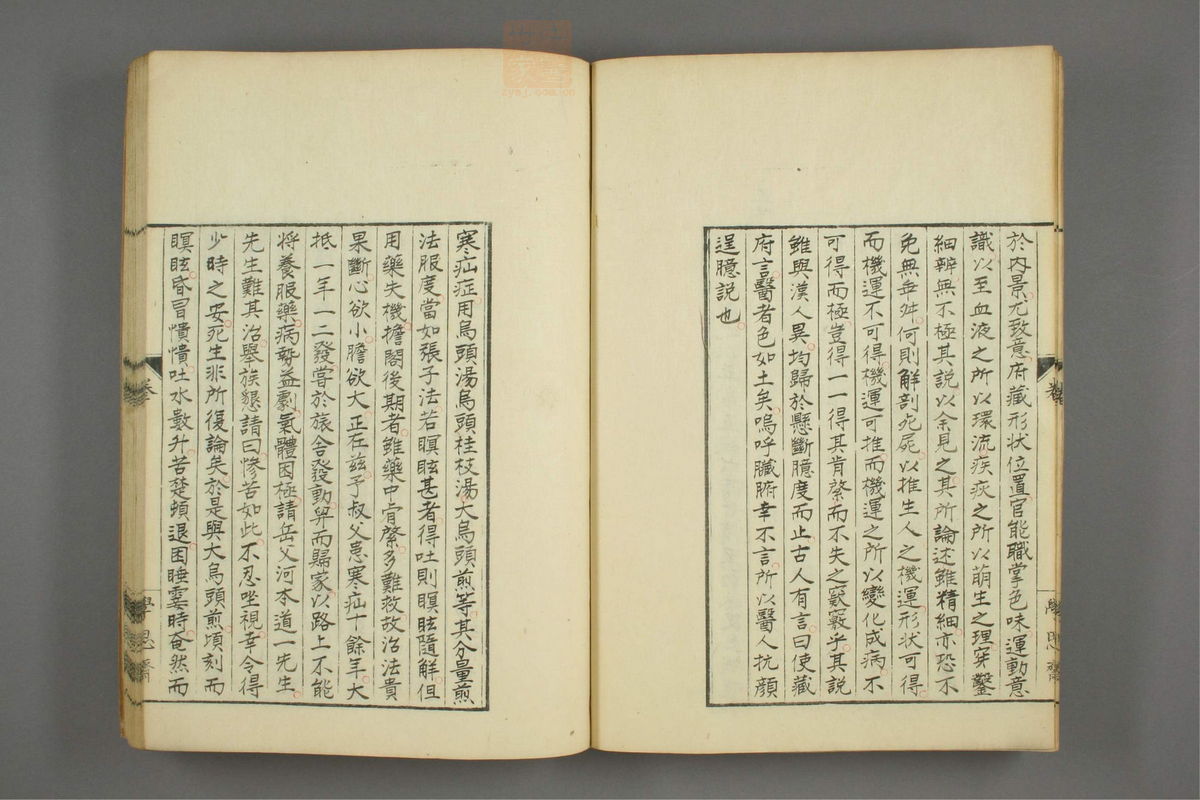 於內景尤致意府藏形状位置官能職掌色味運動意
識以至血液之所以環流疾疢之所以萌生之理穿鑿
細辨無不極其説以余見之其所論述雖精細亦恐不
免無無何則解剖死屍以推生人之機運形状可得
而機運不可得機運可推而機運之所以變化成病不
可得而極豈得一一得其肯綮而不失之窾竅乎其説
雖與漢人異均歸於懸斷臆度而止古人有言曰使藏
府言醫者色如土矣嗚呼臟腑幸不言所以醫人抗顔
逞臆説也
寒疝症用烏頭湯烏頭桂枝湯大烏頭煎等其分量煎
法服度當如張子法若瞑眩甚者得吐則瞑眩隨解但
用藥失機擔閣後期者雖藥中肯綮多難救故治法貴
果斷心欲小膽欲大正在茲予叔父患寒疝十餘年大
抵一年一二發嘗於旅舎發動舁而歸家以路上不能
將養服藥病勢益劇氣體困極請岳父河本道一先生
先生難其治舉族懇請曰慘苦如此不忍坐視幸令得
少時之安死生非所復論矣於是與大烏頭煎頃刻而
瞑眩昏冒憒憒吐水數升苦楚頓退困睡霎時奄然而
卷
學思齋
卷
學思齋
zysj.com.cn